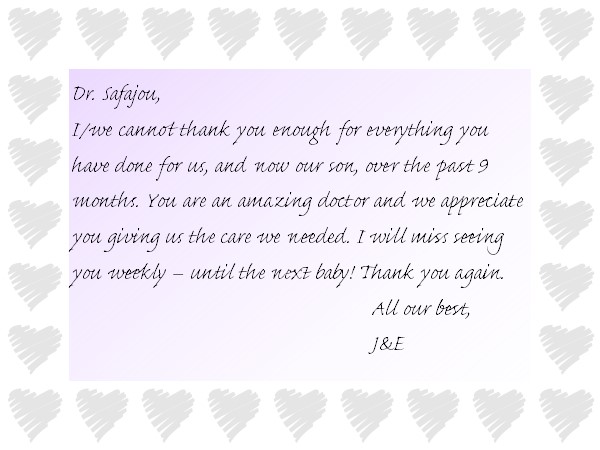 Dr. Safajou,
I/we cannot thank you enough for everything you
have done for us, and now our son, over the past 9
months. You are an amazing doctor and we appreciate
you giving us the care we needed. I will miss seeing
you weekly – until the next baby! Thank you again.
All our best,
J&E